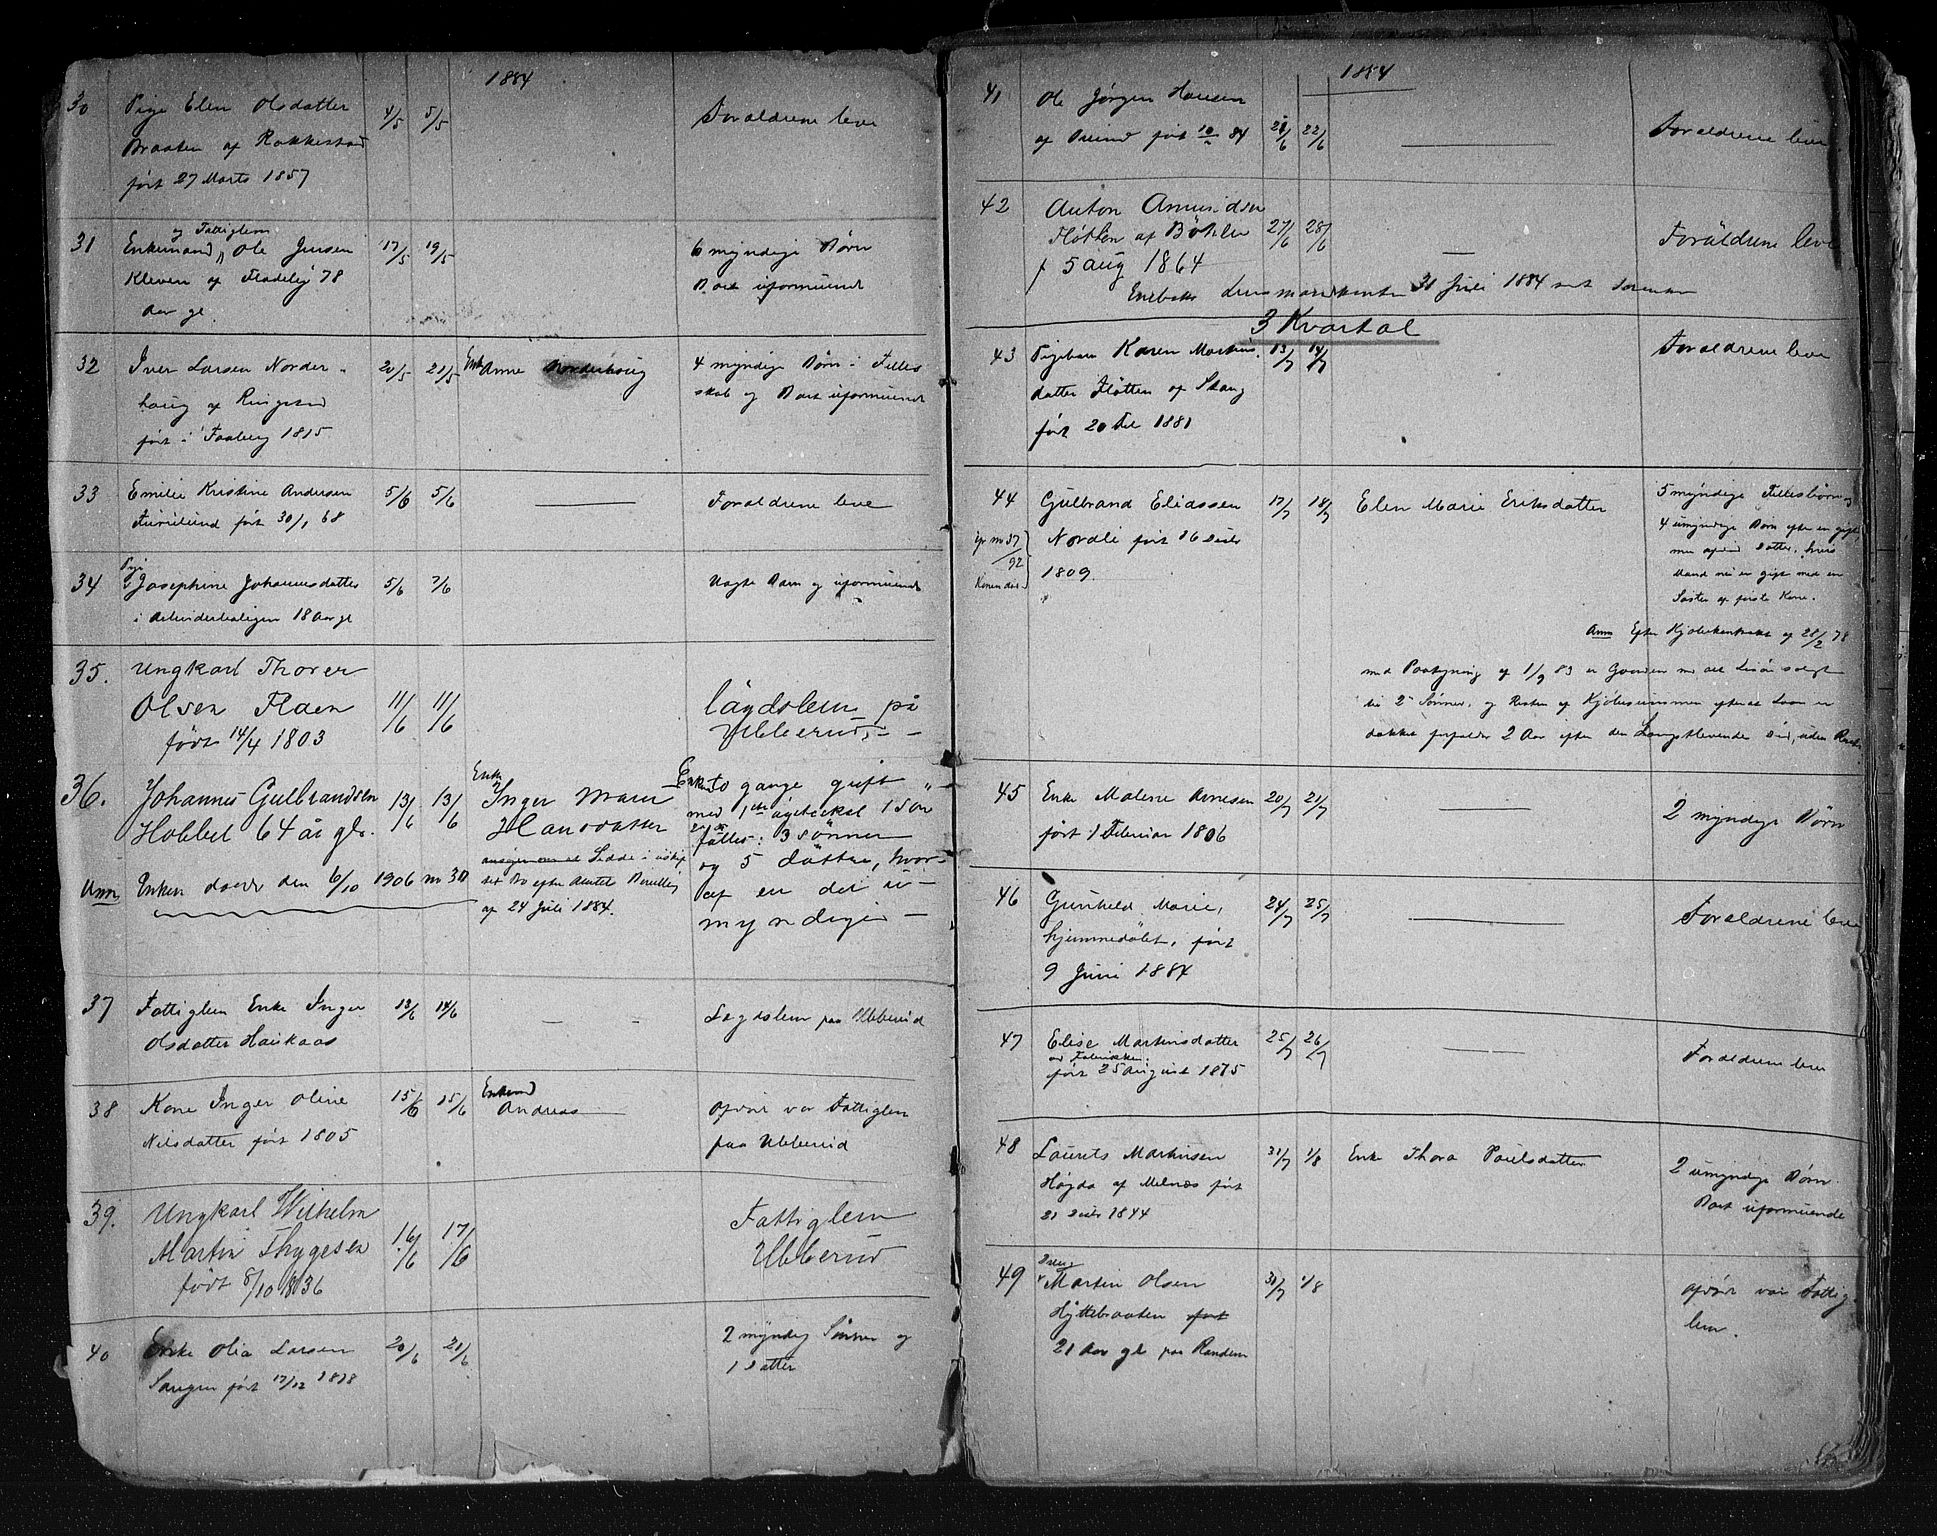 1884
30 Pige Elen Olsdatter 4/5 5/5 Foraldrene leve
Braaten af Rakkestad
født 27 Marts 1857
og Fattiglem
31 Enkemand Ole Jensen 17/5 19/5 6 myndige Børn
Kleven af 78 Boet uformuende
Aar gl.
32 Iver Larsen Norder- 20/5 21/5 Enke Anne Norderhaug 4 myndige Børn i Fælles
haug af Ringstad skab og Boet uformuende
født i Faaberg 1815
33 Emilie Kristine Andersen 5/6 5/6 Foraldrene leve
født 30/1 68
Pige
34 Josephine Johannesdatter 5/6 7/6 Uægte Barn og uformuende
i Arbeiderboligen 18 Aar gl
35. Ungkarl Thorer
Olsen Flaen 11/6 11/6 lägdslem på
født 14/4 1803 Ubberud.
36. Johannes Gulbrandsen 13/6 13/6 Enke Inger Marie Enkem to gange gift
Hobbel 64 år gl. Hansdatter med 1ste ägteskal 1 sön
2det fälles: 3 sönner
Sidde i uskif og 5 döttre, hvor-
Anm Enken døde den 6/10 1906 no 30 tet Bo efter Amtets Bevilling af en del u-
af 24 Juli 1884. myndige
37 Fattiglem Enke Inger 13/6 14/6 Lægdslem paa Ubberud
Olsdatter Haukaas
38 Kone Inger Oline 15/6 15/6 Enkemd Andreas Afdøde var Fattiglem
Nilsdatter født 1805 paa Ubberud
39. Ungkarl Wilhelm 16/6 17/6 Fattiglem
Martin Thygesen Ubberud
født 8/10 1836
40 Enke Olia Larsen 20/6 21/6 2 myndig Sønner og
født 17/12 1818 1 Datter
1884
41 Ole Jørgen Hansen
af født 84 21/6 22/6 Foraldrene leve
42 Anton Amundsen 27/6 28/6 Foräldrene leve
Fløtten af Böhler
f 5 aug 1864
Enebak lensmandskontor 31 Juli 1884
3 Kvartal
43 Pigebarn Karen Martins 13/7 14/7 Foraldrene leve
datter Fløtten af Skaug
født 20 1881
44 Gulbrand Eliassen 17/7 18/7 Elen Marie Eriksdatter 5 myndige Fællesbørn og
Nordli født 16 Decbr 4 umyndige Børn efter en gift
no 37/92 1809. Datter, hvis
Konen død Mand nu er gift med en
Søster af første Kone.
Anm Efter Kjøbekontrakt af 28/2 78
med Paategning af 1/9 83 er Gaarden solgt
til 2 Sønner, og Resten af Kjøbesummen
forfalder 2 Aar efter den Længstlevende Død, uden
45 Enke Malene Arnesen 20/7 21/7 2 myndige Børn
født 1 Februar 1806
46 Gunhild Marie, 24/7 25/7 Foraldrene leve
hjemmedøbt, født
9 Juni 1884
47 Elise Martinsdatter 25/7 26/7 Foraldrene leve
ved Fabrikken.
født 25 August 1875
48 Laurits Martinsen 31/7 1/8 Enke Thora Paulsdatter 2 umyndige Børn.
Høgda af Melnæs født Boet uformuende
21 Decbr 1844
49 Martin Olsen 31/7 1/8 Afdøde var Fattig-
Hyttebraaten født lem.
21 Aar gl paa